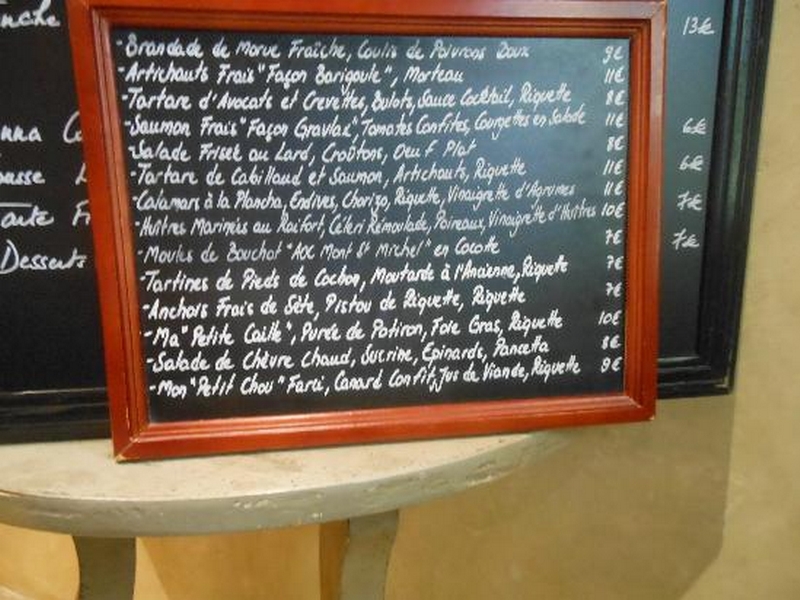 -Brandade de Morue Fraîche, Coulis de Poivrons Doux 9€
-Artichauts Frais "Façon Barigoule", Morteau 11€
-Tartare d'Avocats et Crevettes, Bulots, Sauce Cocktail, Riquette 8€
-Saumon Frais "Façon Gravlax", Tomates Confites, Courgettes en Salade 11€
-Salade Friseé au Lard, Croûtons, Oeuf Plat 8€
-Tartare de Cabillaud et Saumon, Artichauts, Riquette 11€
-Calamars à la Plancha, Endives, Chorizo, Riquette, Vinaigrette d'Agrumes 11€
-Huîtres Marinées au Raifort, Céleri Rémoulade, Poireaux, Vinaigrette d'Huîtres 10€
-Moules de Bouchot "AOC Mont St Michel" en Cocotte 7€
-Tartines de Pieds de Cochon, Moutarde à l'Ancienne, Riquette 7€
-Anchois Frais de Sète, Pistou de Riquette, Riquette 7€
-Ma "Petite Caille", Purée de Potiron, Foie Gras, Riquette 10€
-Salade de Chèvre Chaud, Sucrine, Epinards, Pancetta 8€
-Mon "Petit Chou" Farci, Canard Confit, Jus de Viande, Riquette 9€
13€
6€
6€
7€
Desserts 7€